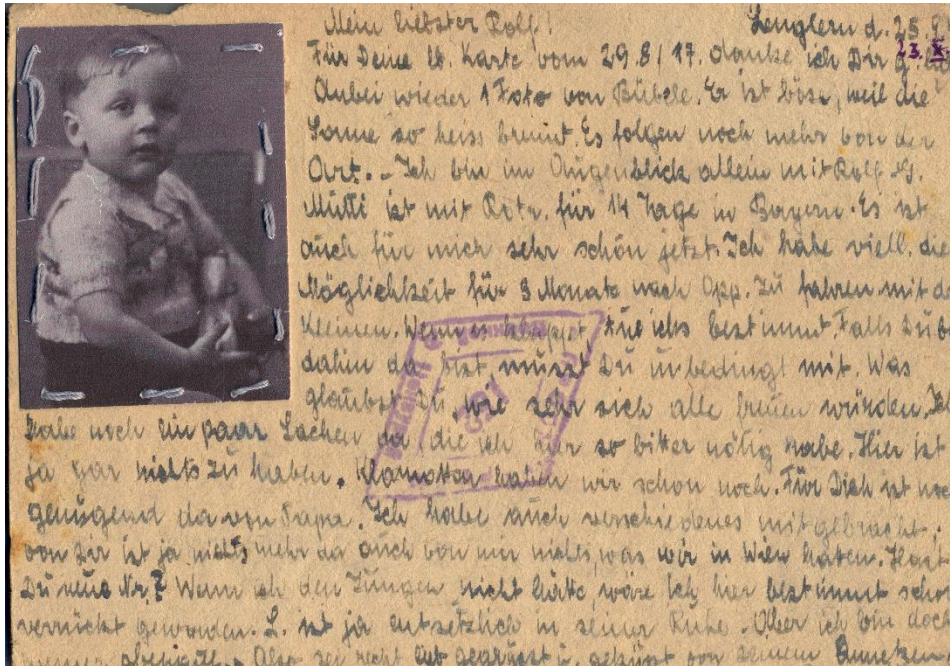 Mein liebster Rolf! Lenglern d. 25.
23. X
Für Deine lb. Karte vom 29.8/17. danke ich Dir
Anbei wieder 1 Foto von Bübele. Er ist böse, weil die
Sonne so heiss brennt. Es folgen noch mehr von der
Art. - Ich bin im Augenblick allein mit Rolf
Mutti ist mit für 14 Tage in Bayern. Es ist
auch für mich sehr schön jetzt. Ich habe viell. die
Möglichkeit für 3 Monate nach Opp. zu fahren mit d
Kleinen. Wenn es klappt, tue ichs bestimmt. Falls Du b
dahin da bist, musst Du unbedingt mit. Was
glaubst Du wie sehr sich alle freuen würden. Ich
habe noch ein paar Sachen da, die ich hier so bitter nötig habe. Hier ist
ja gar nichts zu haben. Klamotten haben wir schon noch. Für Dich ist noch
genügend da von Papa. Ich habe auch verschiedenes mitgebracht,
von Dir ist ja nichts mehr da auch von mir nichts, was wir in Wien hatten. Hast
Du neue Nr.? Wenn ich den Jungen nicht hätte, wäre ich hier bestimmt schon
verrückt geworden. L. ist ja entsetzlich in seiner Ruhe. Aber ich bin doch
Also sei recht lieb gegrüsst u. geküsst von Deinem